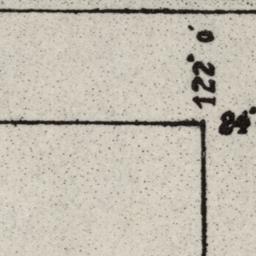 122° 0'
24°